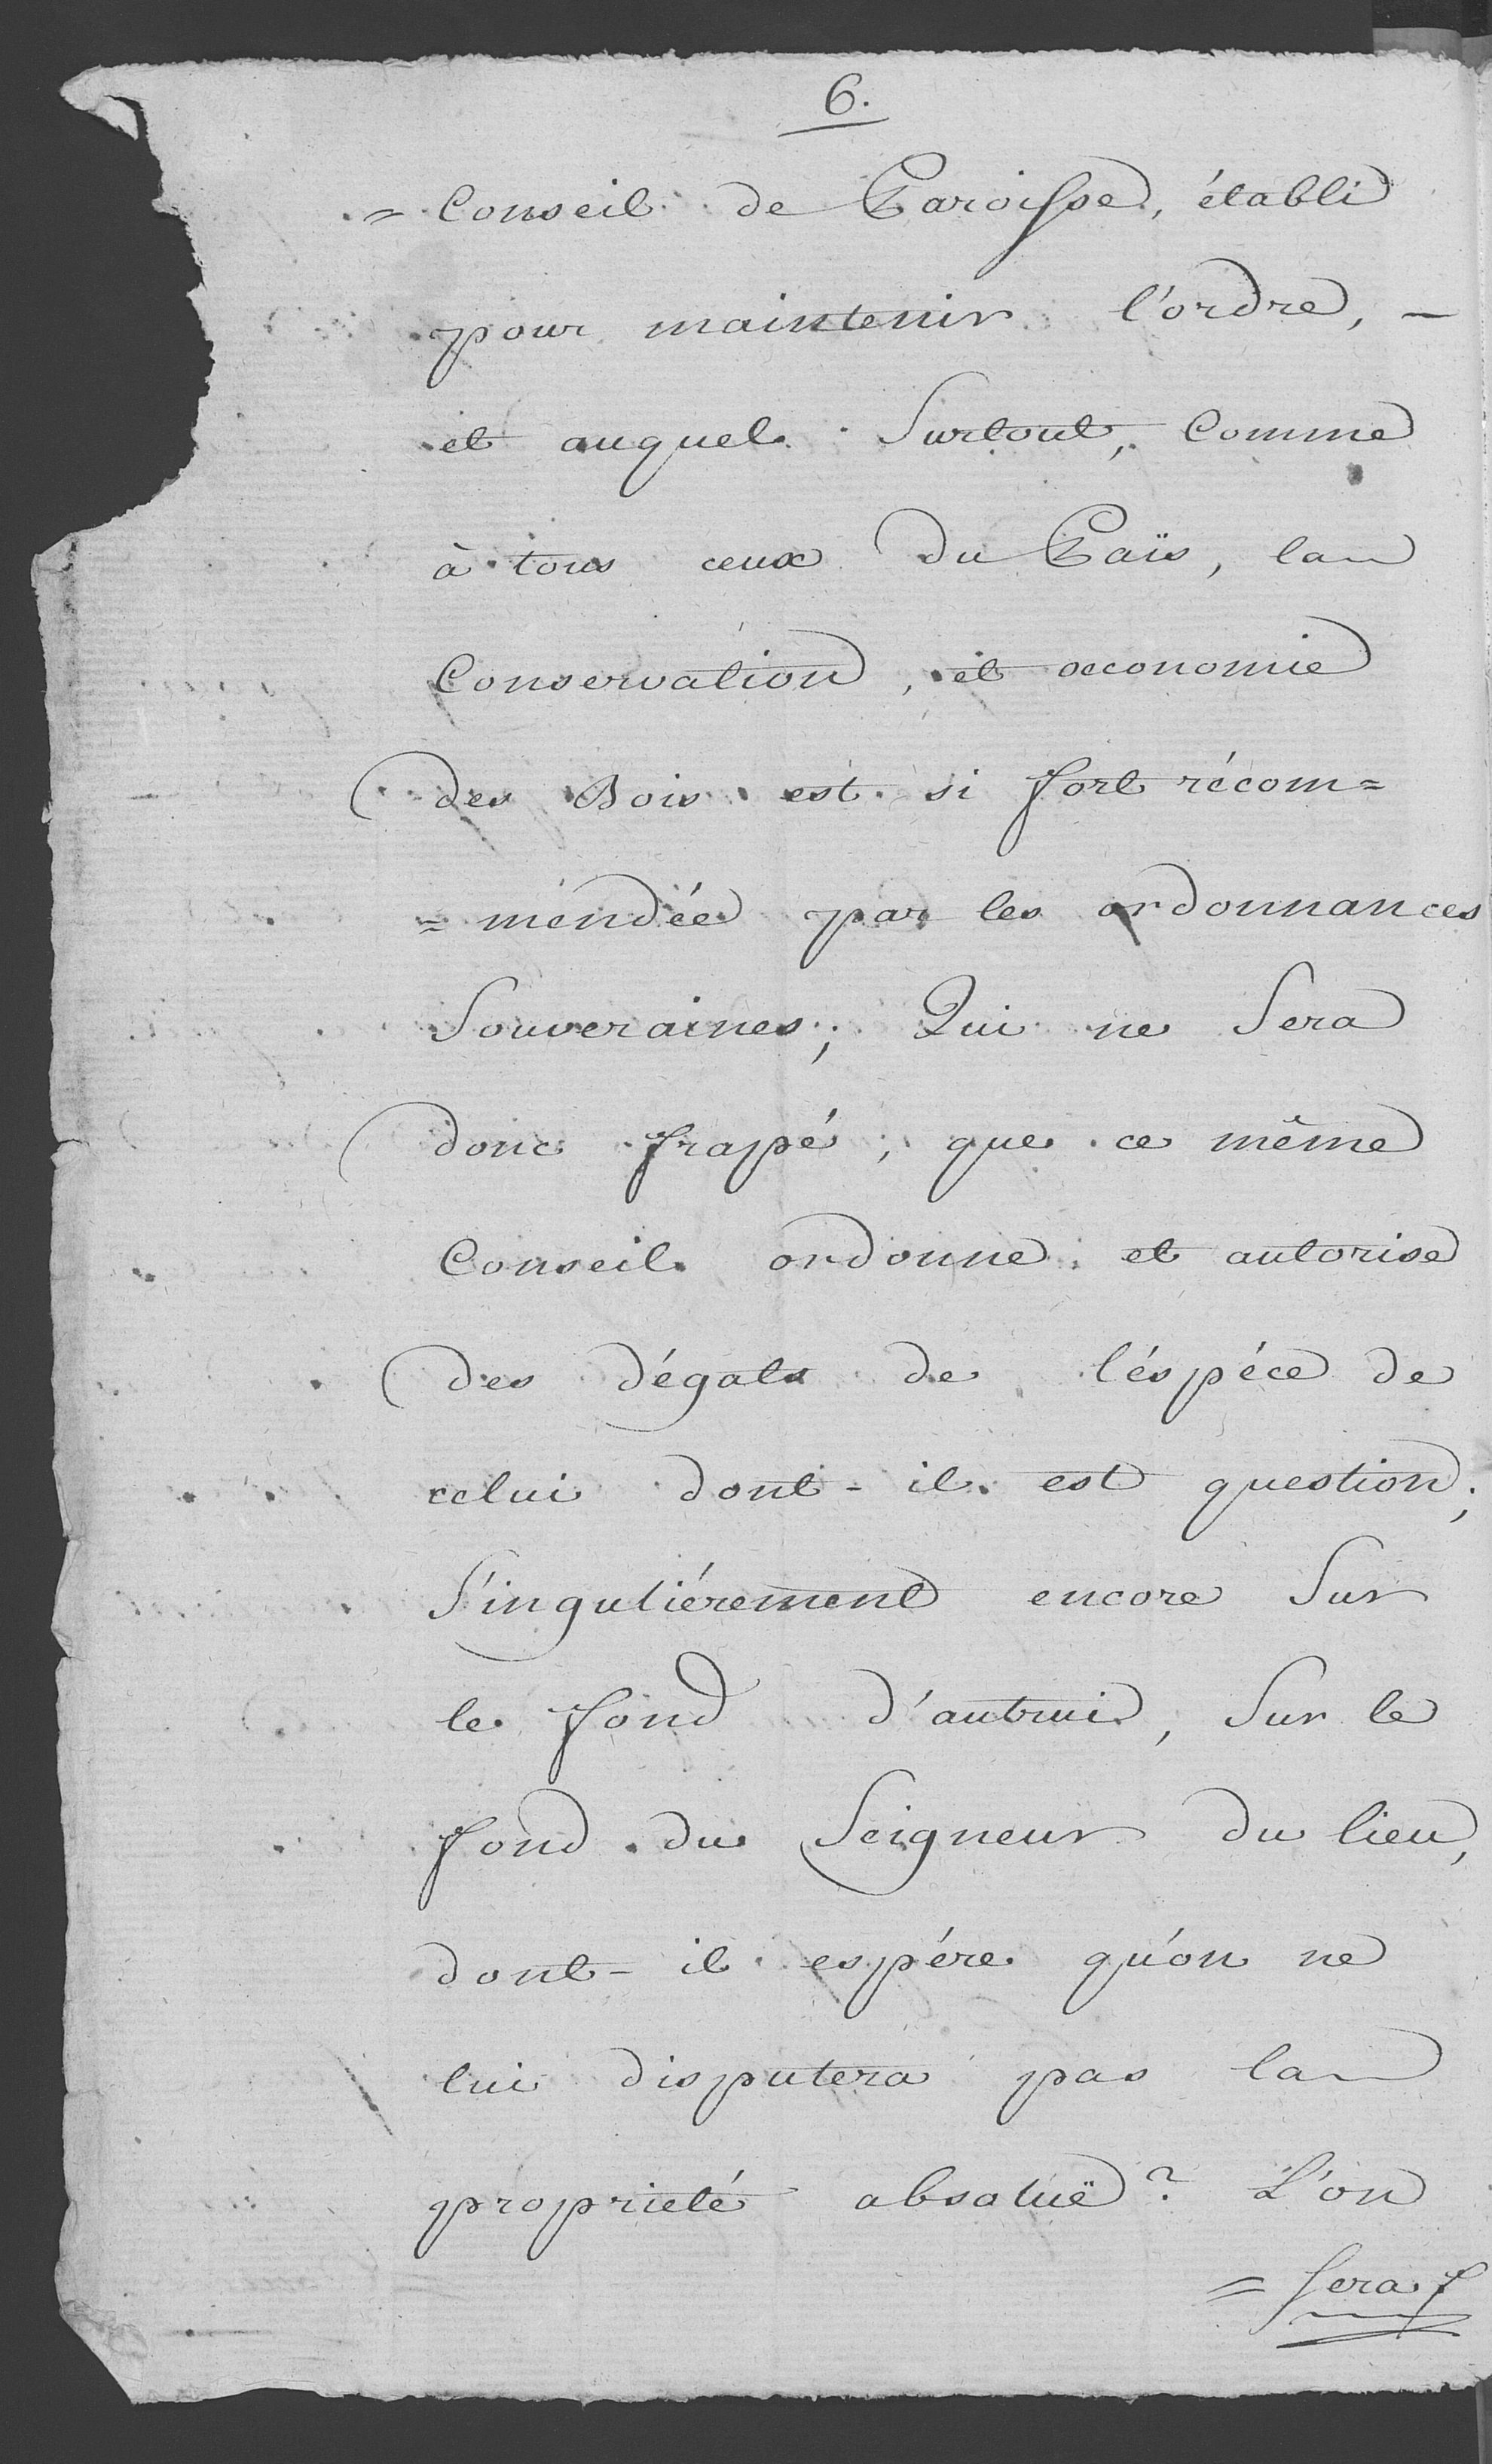 6.
= Conseil de Paroisse, établi
pour maintenir l'ordre, -
et auquel Surtout, Comme
à tous ceux du Païs, la
Conservation, et œconomie
des Bois est si fort récom=
= mendée par les ordonnances
Souveraines; Qui ne Sera
donc frapé, que ce même
Conseil ordonne et autorise
des dégats de l'éspéce de
celui dont-il est question;
Singuliérement encore Sur
le fond d'autrui, Sur le
fond du Seigneur du lieu,
dont-il espére qu'on ne
lui disputera pas la
proprieté absoluë? L'on
= Sera